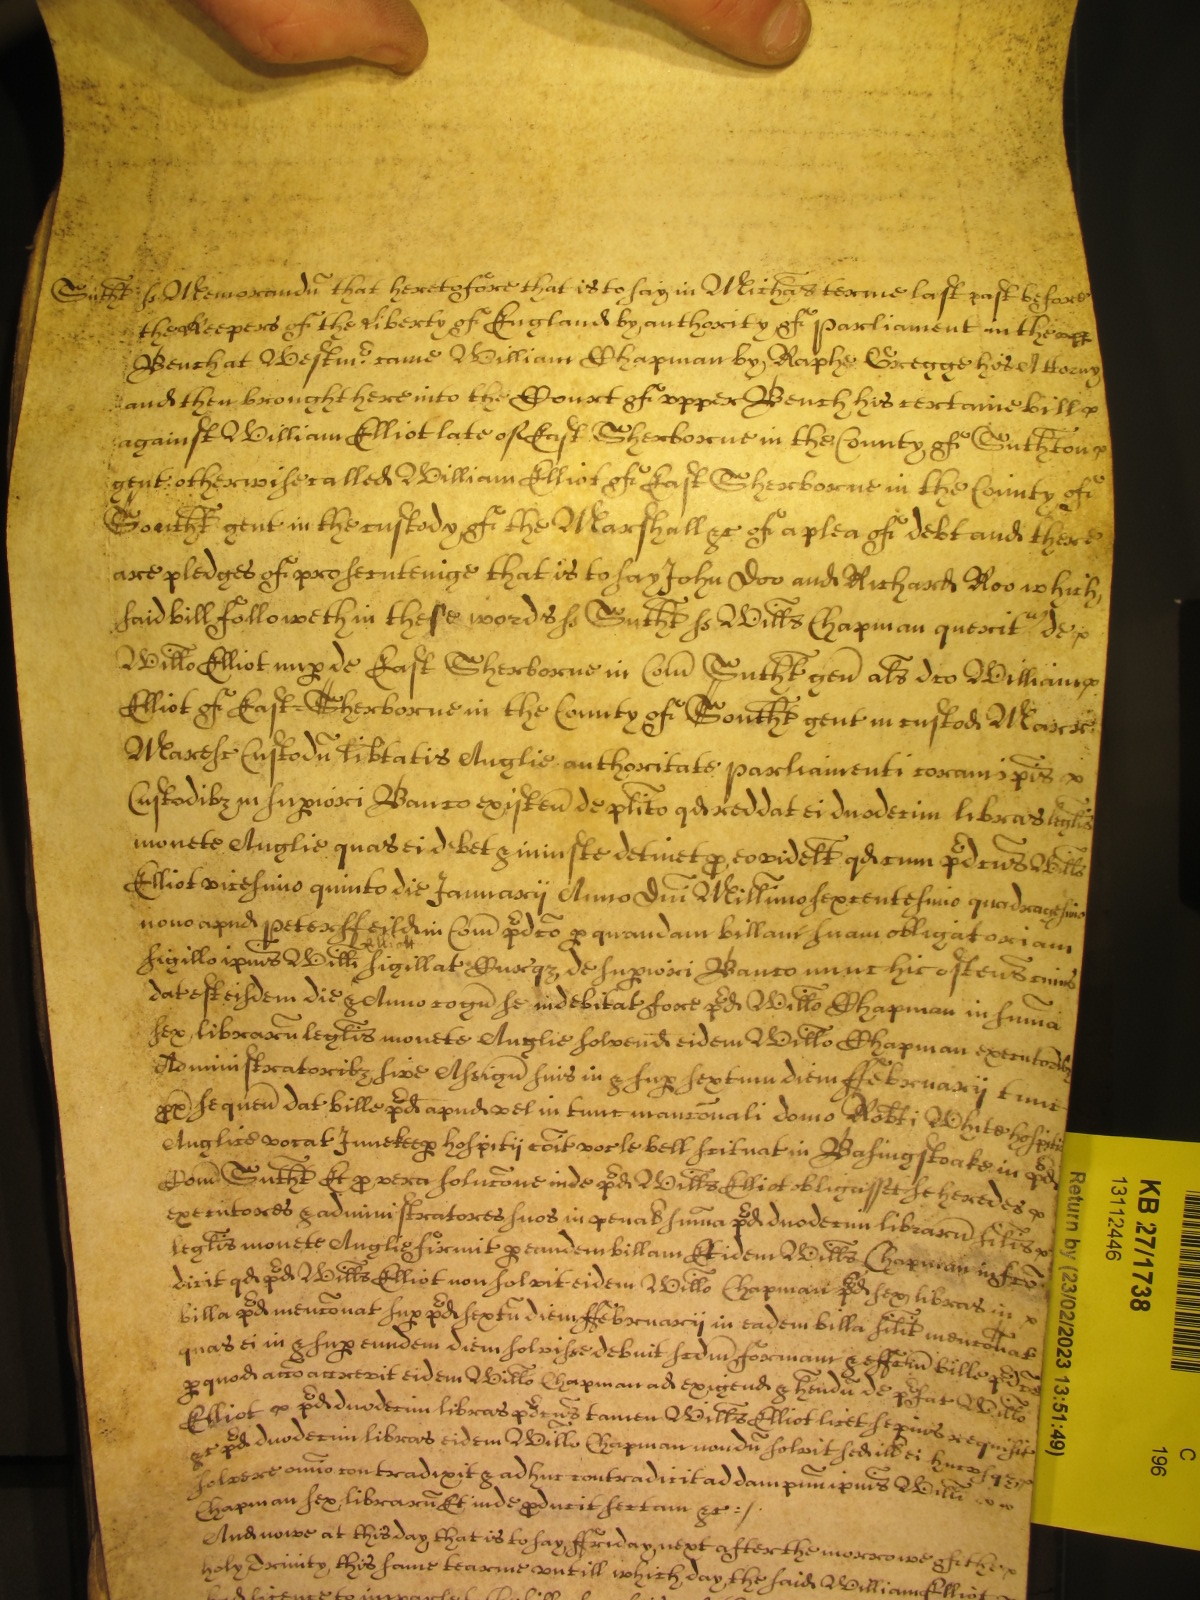 Sutht ss Memorandũ that heretofore that is to say in Michãs terme last past before
the Keepers of the liberty of England by authority of parliament in the upp
Bench at Westmr came William Chapman by Raphe Gregge his Attorny
and then brought here into the Court of upper Bench his certaine bill
against William Elliot late of East Sherborne in the County of Suthton
gent otherwise called William Elliot of East Sherborne in the County of
Southt gent in the custody of the Marshall &c of a plea of debt and there
are pledges of prosecuteinge that is to say John Doo and Richard Roo which
said bill followeth in these words ss Sutht ss Wills Chapman querit de
Willo Elliot nup de East Sherborne in Com Sutht gen als dco William
Elliot of East-Sherborne in the County of Southt gent in custod Marr
Maresc Custodũ libtatis Anglie authoritate parliamenti coram ipis
Custodibz in supiori Banco existeñ de plito qd reddat ei duodecim libras leglis
monete Anglie quas ei debet & iniuste detinet p eo videlt qd cum pdcus Wills
Elliot vicesimo quinto die Januarij Anno Dni Millimo sexcentesimo quadragesimo
nono apud Petersfeild in Com pdco p quandam billam suam obligatoriam
Elliott
sigillo ipius Willi sigillat Curqz de supiori Banco nunc hic ostens cuius
dat est eisdem die & Anno cogn se indebitat fore pd Willo Chapman in sum̃a
sex librarũ leglis monete Anglie solvend eidem Willo Chapman executoribz
Administratoribz sive Assign suis in & sup sextum diem ffebruarij tunc
px sequeñ dat bille pd apud vel in tunc mancõnali domo Robti White hospit
Anglice vocat Innekeep hospitij coit vocle bell scituat in Basingstoake in pd
Com Sutht Et p vera solucõne inde pd Wills Elliot obligasset se heredes
executores & administratores suos in penal sum̃a pd duodecim librarũ silis
leglis monete Anglie firmit p eandem billam Et idem Wills Chapman in fco
dicit qd pd Wills Elliot non solvit eidem Willo Chapman pd sex libras in
billa pd mencõnat sup pd sextũ diem ffebruarij in eadem billa silit mencõnat
quas ei in & sup eundem diem solvisse debuit scdm formam & effcum bille pdce
p quod acco accrevit eidem Willo Chapman ad exigend & hendũ de pfat Willo
Elliot pd duodecim libras pdcus tamen Wills Elliot licet sepius requisit
&c pd duodecim libras eidem Willo Chapman nondũ solvit sed ill ei hucusqz
solvere omino contradixit & adhuc contradicit ad dampnũ ipius Willi
Chapman sex librarũ Et inde pducit sectam &c :/
And nowe at this day that is to say ffriday next after the morrowe of the
holy Trinity this same tearme untill which day the said William Elliot
had licence to imparle
KB 27/1738
13112446
Return by (23/02/2023 13:51:49)
C
196